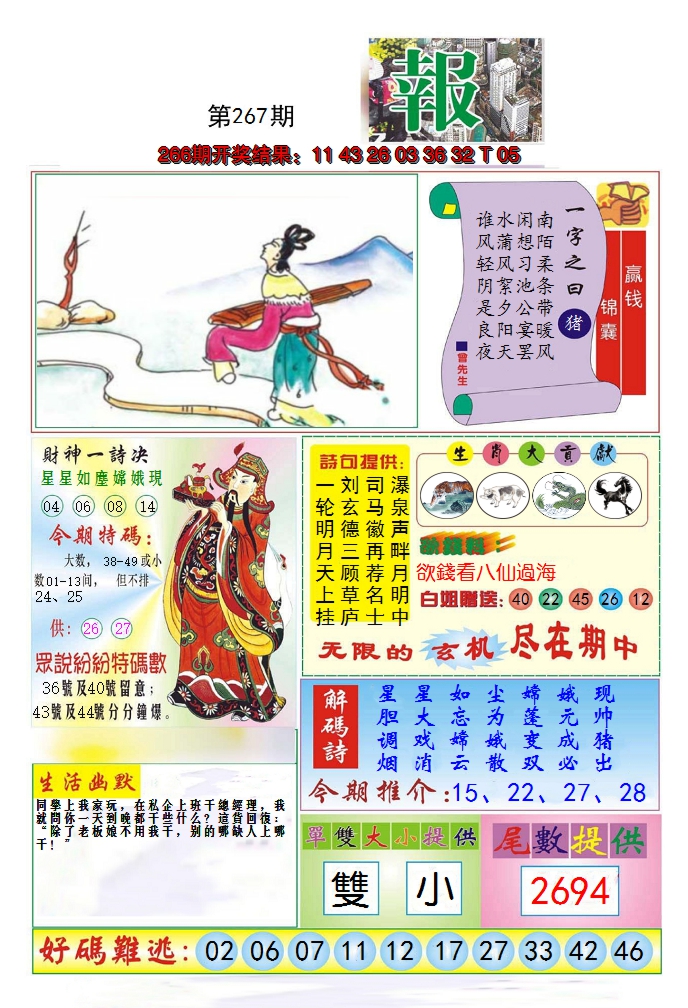 報
第267期
266期开奖结果：11 43 26 03 36 32 T 05
一字之曰
猪
南陌柔条带暖风
闲想习池公宴罢
水蒲风絮夕阳天
谁风轻阴是良夜
曾先生
赢钱
锦囊
財神一詩决
星星如塵嫦娥現
04 06 08 14
今期特碼：
大数，38-49或小
数01-13间， 但不排
24、25
供: 26 27
眾說紛紛特碼數
36號及40號留意；
43號及44號分分鐘爆。
詩句提供:
瀑泉声畔月明中
司马徽再荐名士
刘玄德三顾草庐
一轮明月天上挂
生肖大貢獻
欲錢看八仙過海
白姐贈送: 40 22 45 26 12
无限的 玄机 尽在期中
解碼詩
星星如尘嫦娥现
胆大忘为蓬元帅
调戏嫦娥变成猪
烟消云散双必出
今期推介:15、22、27、28
生活幽默
同學上我家玩，在私企上班干總經理，我
就問你一天到晚都干些什么？這貨回復：
“除了老板娘不用我干，别的哪缺人上哪
干！”
單雙大小提供
雙 小
尾數提供
2694
好碼難逃: 02 06 07 11 12 17 27 33 42 46